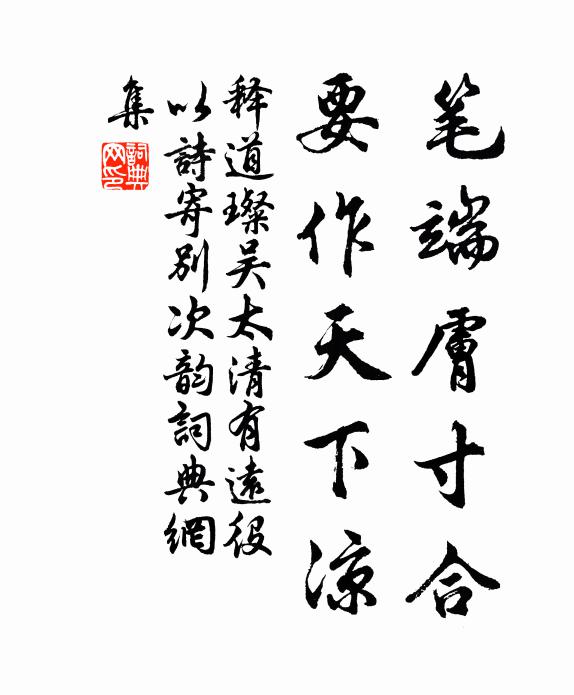 笔端膚寸合
要作天下涼
释道璨吴太清有遠役
以詩寄別次韵詞典網
集
詞典网印